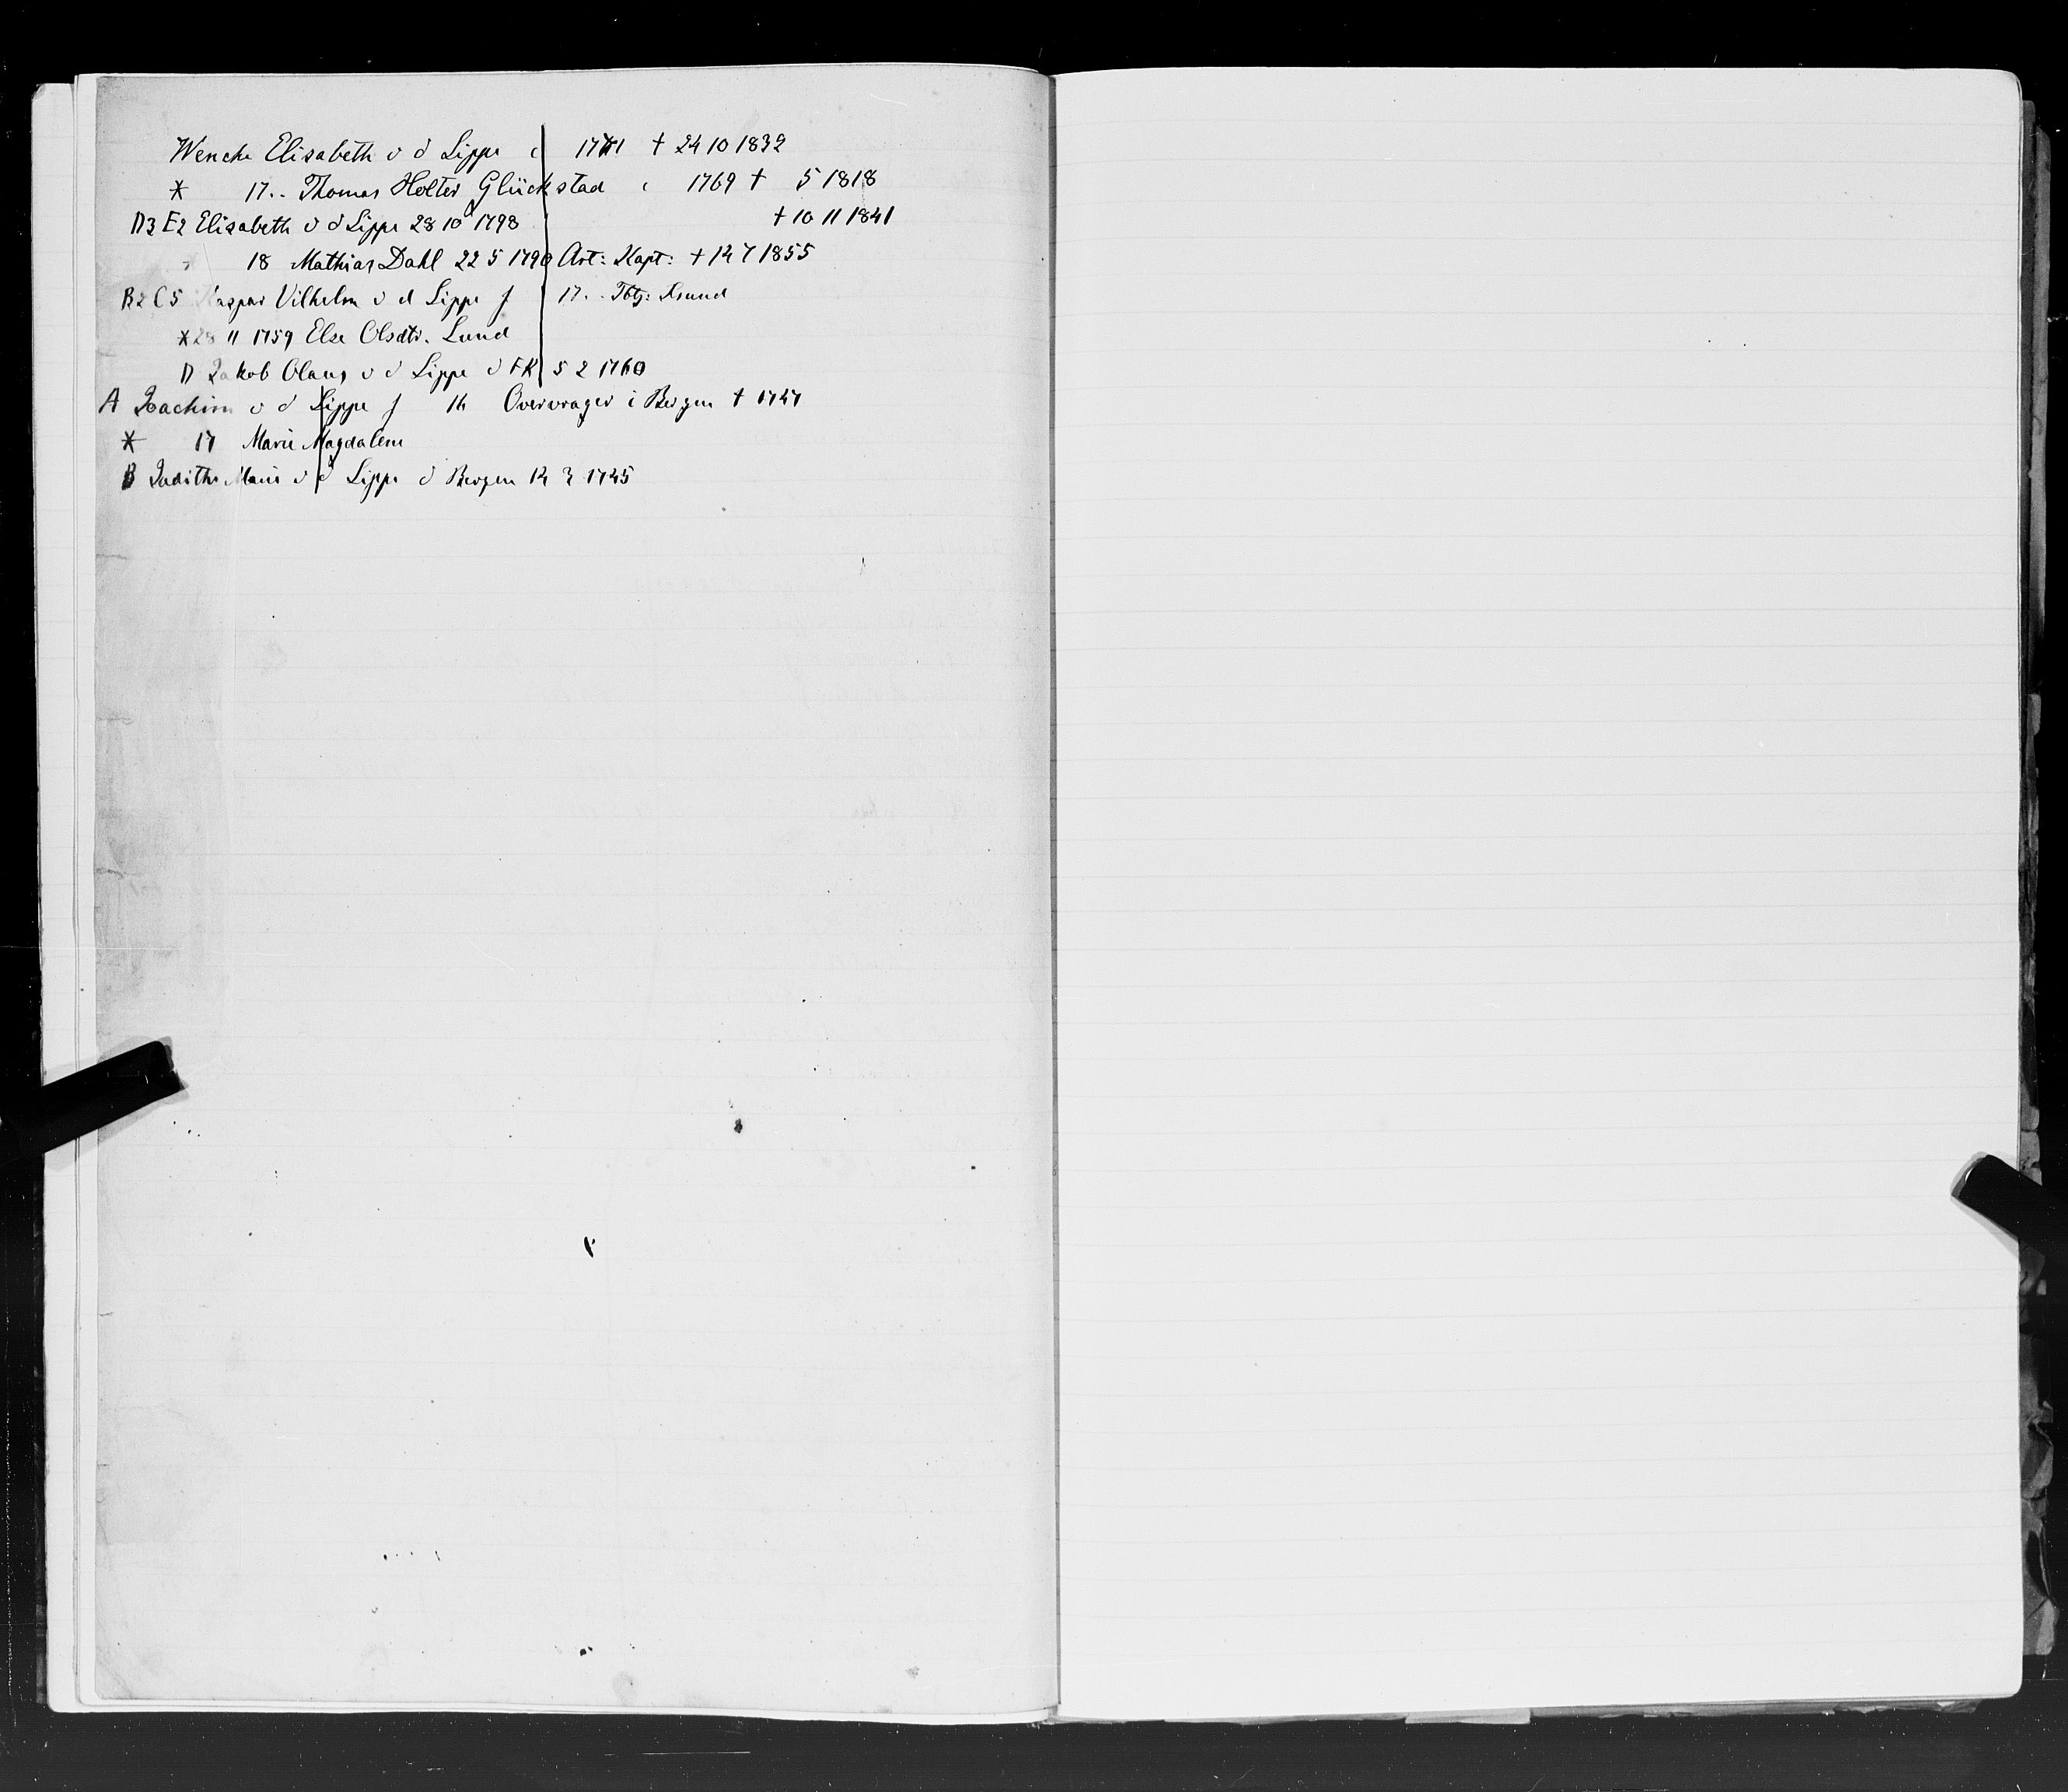 Wenche Elisabeth v d Lippe c 1771 † 24 10 1832
* 17.. Thomas Holter Glückstad c 1769 † 5 1818
D3 E2 Elisabeth v d Lippe 28 10 1798 † 10 11 1841
18 Mathias Dahl 22 5 1790 Art: Kapt: † 14 7 1855
B2 C5 Kaspar Vilhelm v d Lippe f 17..
* 28 11 1759 Else Olsdtr. Lund
D Jakob Olaus v d Lippe d FK 5 2 1760
A Joachim v d Lippe f 16 Overvrager i Bergen † 1747
* 17 Marie Magdalene
B Judithe Marie v d Lippe d Bergen 14 3 1745